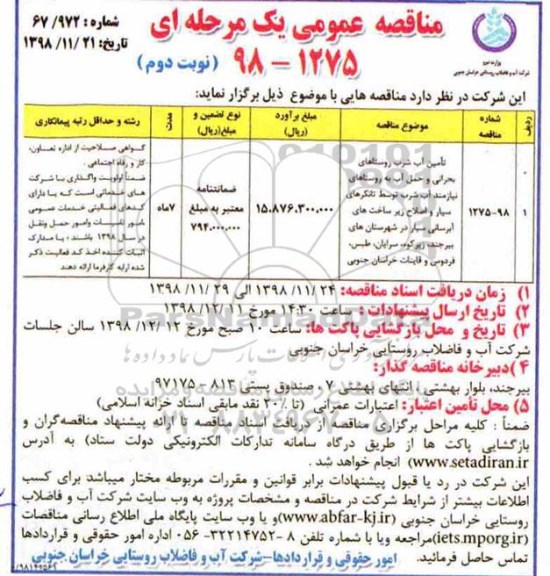 شماره : ۶۷/۹۷۲
تاریخ: ۱۳۹۸/۱۱/۲۱
مناقصه عمومی یک مرحله ای
۱۲۷۵ - ۹۸ (نوبت دوم)
وزارت نیرو
شرکت آب و فاضلاب روستایی خراسان جنوبی
این شرکت در نظر دارد مناقصه هایی با موضوع ذیل برگزار نماید:
ردیف
شماره مناقصه
موضوع مناقصه
مبلغ برآورد (ریال)
نوع تضمین و مبلغ(ریال)
مدت
رشته و حداقل رتبه پیمانکاری
۱
۱۲۷۵-۹۸
تأمین آب شرب روستاهای
بحرانی و حمل آب به روستاهای
نیازمند آب شرب توسط تانکرهای
سیار و اصلاح زیر ساخت های
آبرسانی سیار در شهرستان های
بیرجند، زیرکوه، سرایان، طبس،
فردوس و قاینات خراسان جنوبی
۱۵،۸۷۶،۳۰۰،۰۰۰
ضمانتنامه
معتبر به مبلغ
۷۹۴،۰۰۰،۰۰۰
۷ماه
گواهی صلاحیت از اداره تعاون،
کار و رفاه اجتماعی .
ضمناً اولویت واگذاری با شرکت
های خدماتی است که با دارای
کدهای فعالیتی خدمات عمومی
امور تاسیسات وامور حمل ونقل
در سال ۱۳۹۸ باشند ، یا مدارک
اثبات کننده اخذ کد فعالیت ذکر
شده ارایه کارفرما ارائه دهند
۱) زمان دریافت اسناد مناقصه: ۱۳۹۸/۱۱/۲۴ الی ۱۳۹۸/۱۱/۲۹
۲) تاریخ ارسال پیشنهادات : ساعت ۱۴:۳۰ مورخ ۱۳۹۸/۱۲/۱۱
۳) تاریخ و محل بازگشایی پاکت ها: ساعت ۱۰ صبح مورخ ۱۳۹۸/۱۲/۱۲ سالن جلسات
شرکت آب و فاضلاب روستایی خراسان جنوبی
۴)دبیرخانه مناقصه گذار:
بیرجند، بلوار بهشتی ، انتهای بهشتی ۷، صندوق پستی ۸۱۳ - ۹۷۱۷۵
۵) محل تأمین اعتبار: اعتبارات عمرانی (تا ۳۰٪ نقد مابقی اسناد خزانه اسلامی)
ضمناً : کلیه مراحل برگزاری مناقصه از دریافت اسناد مناقصه تا ارائه پیشنهاد مناقصه‌گران و
بازگشایی پاکت ها از طریق درگاه سامانه تدارکات الکترونیکی دولت ستاد) به آدرس
www.setadiran.ir) انجام خواهد شد .
این شرکت در رد یا قبول پیشنهادات برابر قوانین و مقررات مربوطه مختار میباشد برای کسب
اطلاعات بیشتر از شرایط شرکت در مناقصه و مشخصات پروژه به وب سایت شرکت آب و فاضلاب
روستایی خراسان جنوبی (www.abfar-kj.ir)و یا وب سایت پایگاه ملی اطلاع رسانی مناقصات
(iets.mporg.ir)مراجعه ویا با شماره تلفن ۸-۳۲۲۱۴۷۵۲-۰۵۶ اداره امور حقوقی و قراردادها
تماس حاصل فرمائید.
امور حقوقی و قراردادها-شرکت آب و فاضلاب روستایی خراسان جنوبی